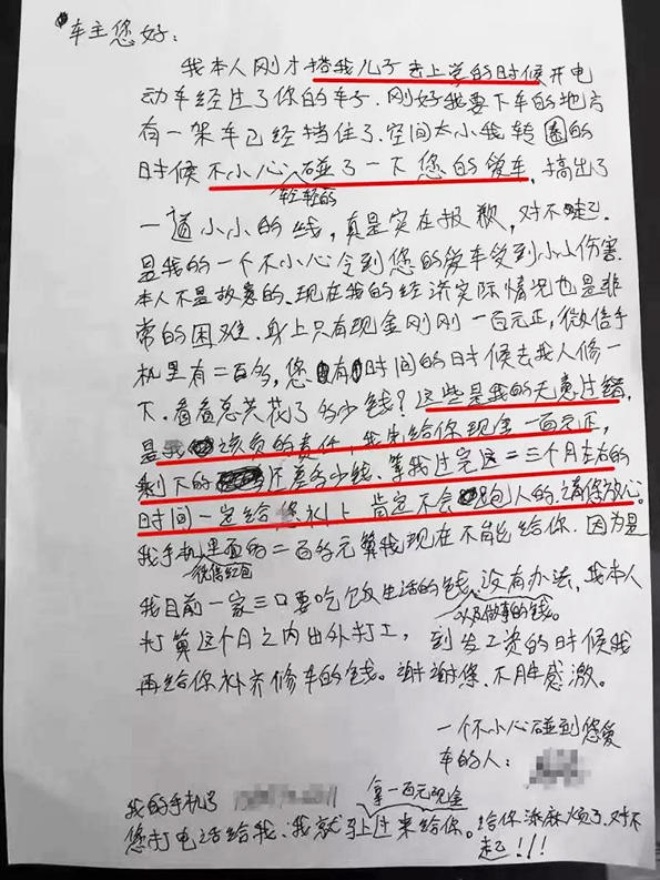 车主您好：
我本人刚才搭我儿子去上学的时候开电
动车经过了你的车子.刚好我要下车的地方
有一架车已经挡住了.空间太小我转圈的
时候不小心碰了一下您的爱车，搞出了
轻轻的
一道小小的线，真是实在报歉，对不起.
是我的一个不小心令到您的爱车受到小小伤害.
本人不是故意的.现在我的经济实际情况也是非
常的困难.身上只有现金刚刚一百元正，微信手
机里有二百多，您有时间的时候去找人修一
下.看看总共花了多少钱？这些是我的无意过错，
是我该负的责任，我先给你现金一百元正，
剩下的还差多少钱.等我过完这二三个月左右的
时间一定给你补上肯定不会跑人的.请你放心.
我手机里面的二百多元算我现在不能出给你.因为是
微信红包
我目前一家三口要吃饭生活的钱，没有办法，我本人
以及做事的钱。
打算这个月之内出外打工，到发工资的时候我
再给你补齐修车的钱。谢谢您.不胜感激。
一个不小心碰到您爱
车的人：
我的手机号
拿一百元现金
您打电话给我.我就马上过来给你。给你添麻烦了.对不
起！！！